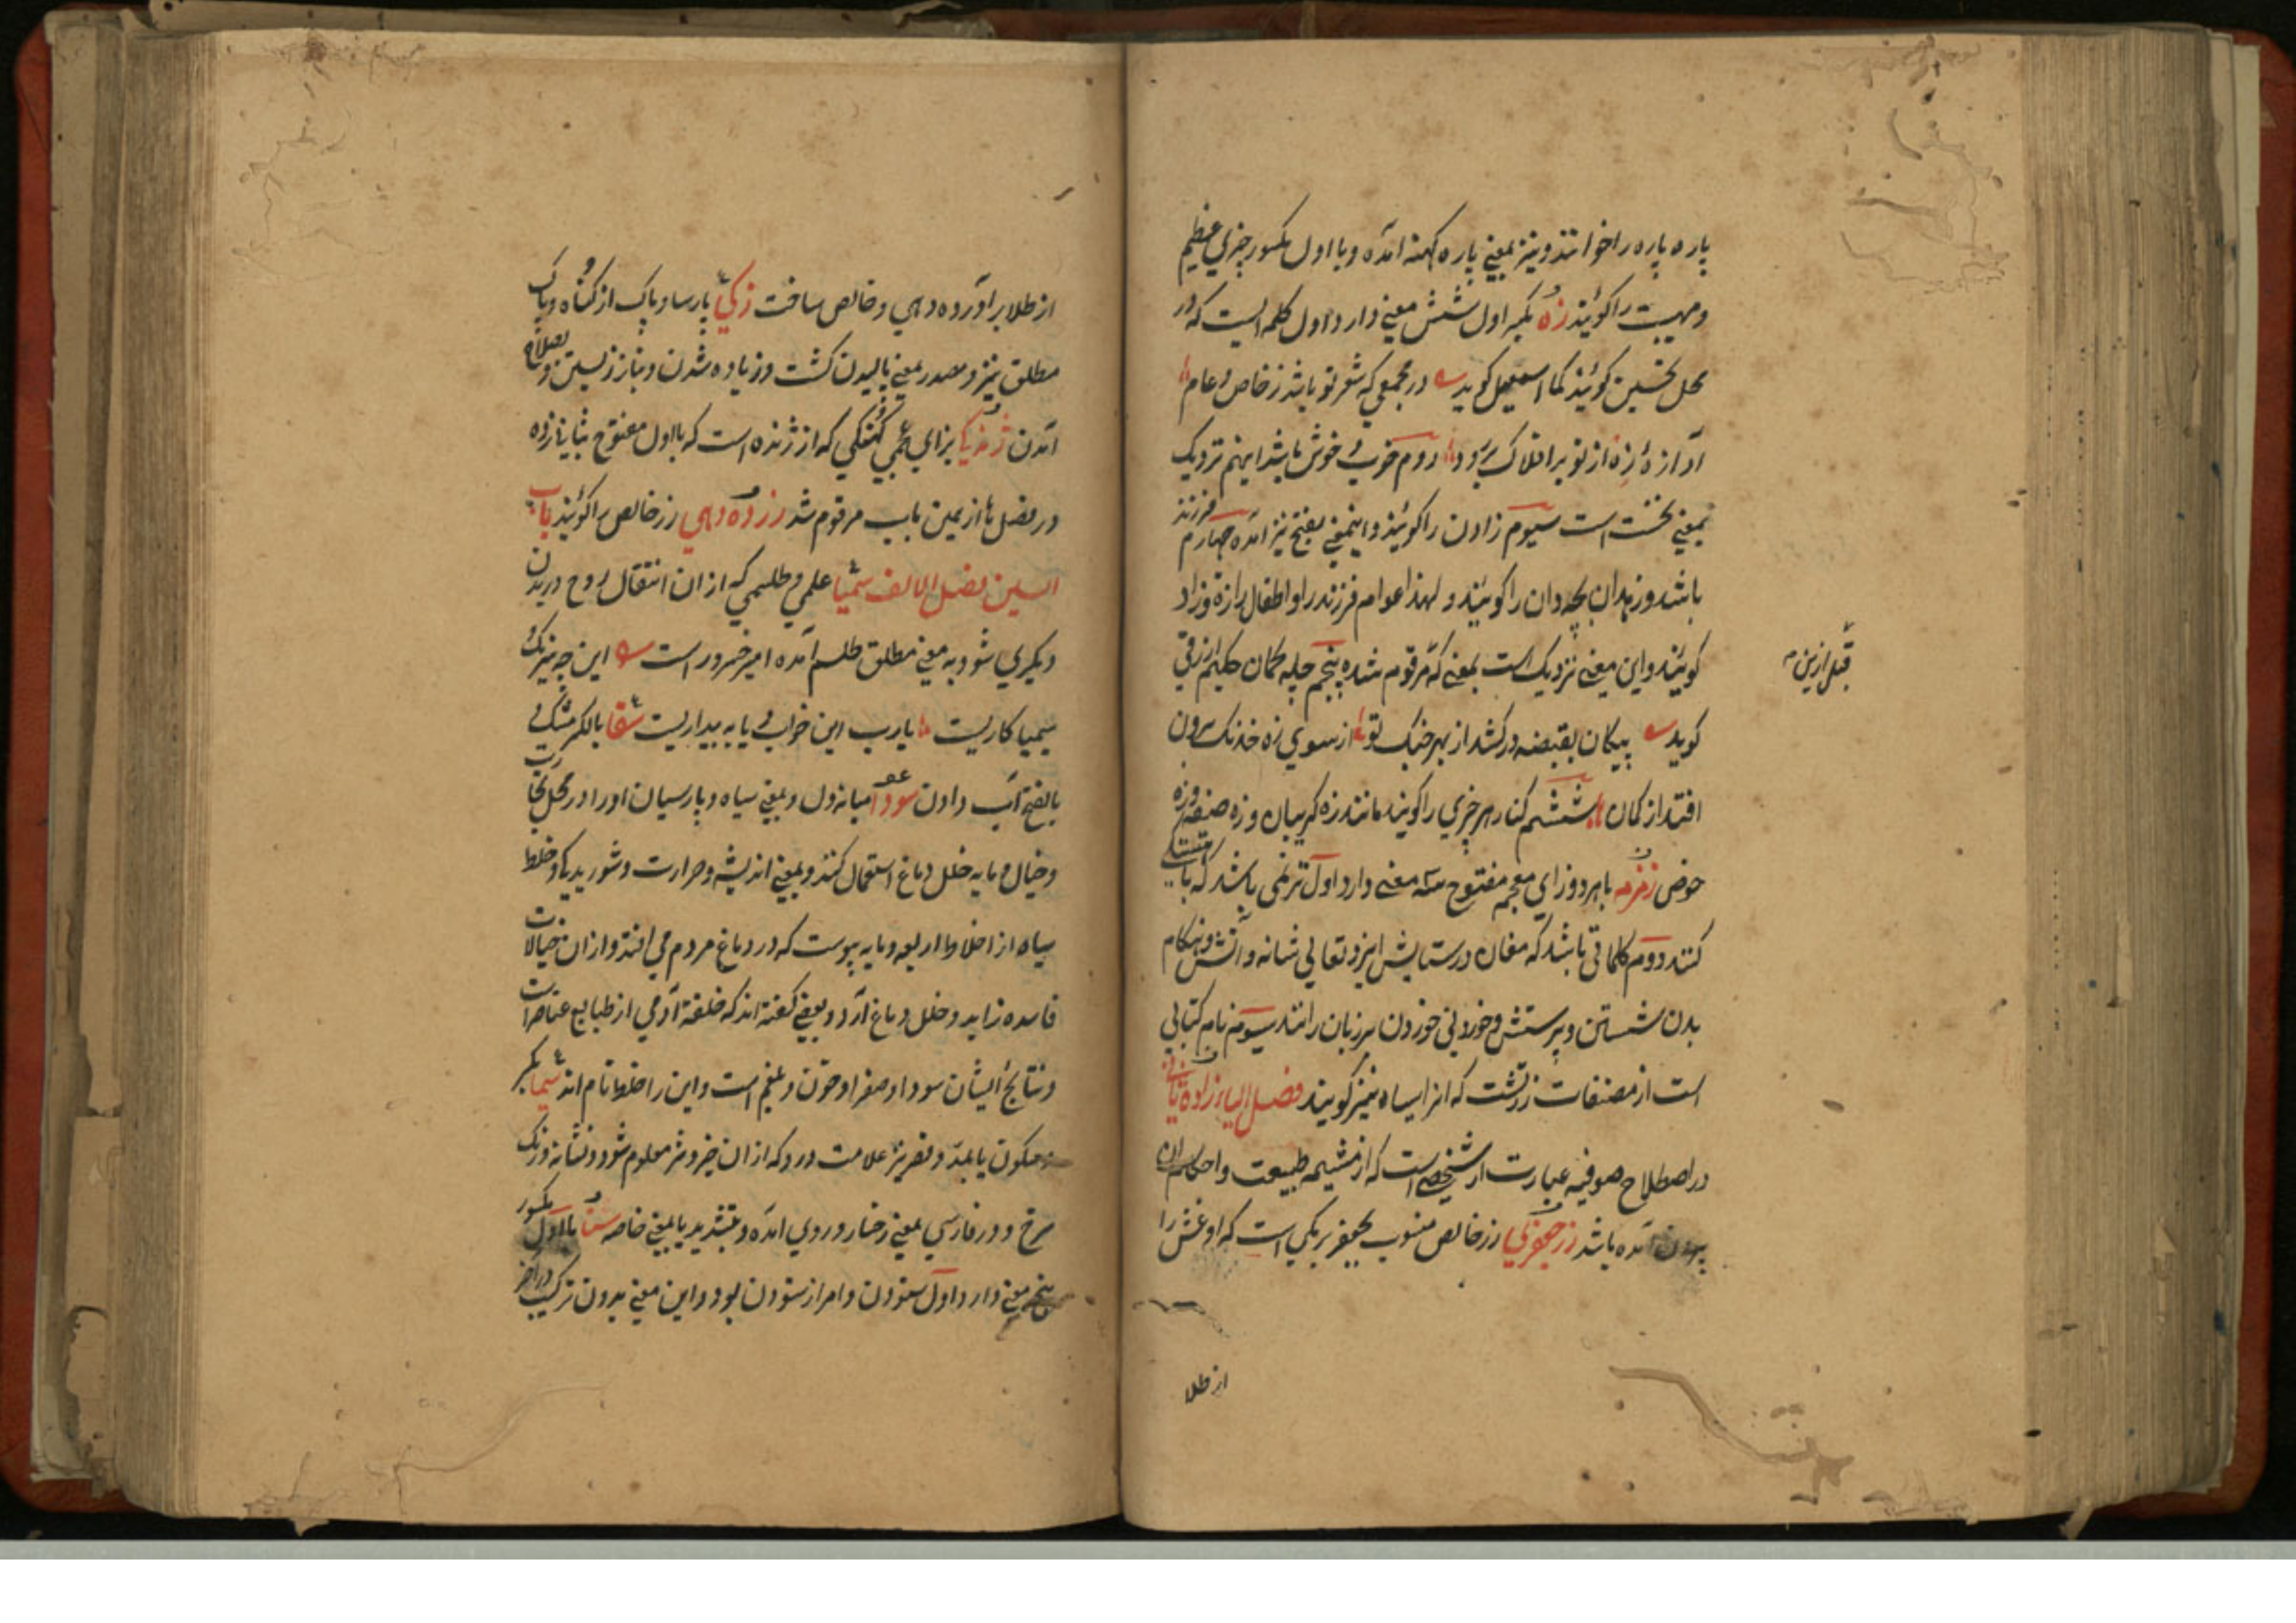 پاره پاره را خوانند و نیز بمعنی پاره کهنه آمده و با اول مکسور چیزی عظیم
و مهیب را گویند زه بکسر اول شش معنی دارد اول کلمه ایست که در
محل تحسین گویند کما اسمعیل گوید در مجمعی که شعر تو باشد ز خاص و عام
آوازهٔ زه از تو بر افلاک بر رود دوم خوب و خوش باشد اینهم نزدیک
بمعنی نخست است سیوم زادن را گویند و اینمعنی بفتح نیز آمده چهارم فرزند
باشد و زهدان بچه دان را گویند و لهذا عوام فرزند را و اطفال را زه و زاد
گویند و این معنی نزدیک است بمعنی که مرقوم شده پنجم چله کمان حکیم ازرقی
قبل ازین
گوید پیکان بقبضه در کشد از بهر جنگ تو از سوی زه خدنگ برون
افتد از کمان ششم کنار هر چیزی را گویند مانند زه گریبان و زه صفه و زه
حوض زمزمه با هر دو زای معجم مفتوح سه معنی دارد اول ترنمی باشد که باهستگی
کنند دوم کلماتی باشد که مغان در ستایش ایزد تعالی شانه و آتش و هنگام
بدن شستن و پرستش و خوردنی خوردن بر زبان رانند سیوم نام کتابی
است از مصنفات زردشت که انرا ایساه نیز گویند فصل الیاء زادهٔ ثانی
در اصطلاح صوفیه عبارت از شخصی است که از مشیمه طبیعت و احکام ان
برون آمده باشد زر جعفری زر خالص منسوب بجعفر برمکی است که او غش را
از طلا
از طلا براورده دهی و خالص ساخت زکی پارسا و پاک از گناه و پاک
مطلق نیز و مصدر بمعنی بالیدن کشت و زیاده شدن و بناز زیستن و بصلاح
آمدن ژندگی بزای عجمی کهنگی که از ژنده است که با اول مفتوح بثانی زده
در فصل ها از همین باب مرقوم شد زر ده دهی زر خالص را گویند باب
السین فصل الالف سیمیا علمی و طلسمی که از ان انتقال روح در بدن
دیگری شود و به معنی مطلق طلسم آمده امیر خسرو راست این چه نیرنگ و
سیمیا کاریست یا رب این خواب یا به بیداریست سقا بالکسر مشک و
بالفتح آب دادن سودا میانه دل و بمعنی سیاه و پارسیان او را در محل تجارت
و خیال و مایه خلل دماغ استعمال کنند و بمعنی اندیشه و حرارت و شوریدگی و خلط
سیاه از اخلاط اربعه و مایه یبوست که در دماغ مردم می افتد و از ان خیالات
فاسده زاید و خلل دماغ آرد و بعضی گفته اند که خلقت آدمی از طبایع عناصر است
و نتایج ایشان سودا و صفرا و خون و بلغم است و این را خلط نام اند سیما بکسر
و سکون یا بمد و قصر نیز علامت در رو که از ان خیر و شر معلوم شود و نشانه و رنگ
سرخ و در فارسی بمعنی رخسار و روی آمده و بتشدید یا بمعنی خاصه ستا با اول مکسور
پنج معنی دارد اول ستودن و امر از ستودن بود و این معنی بدون ترکیب در آخر